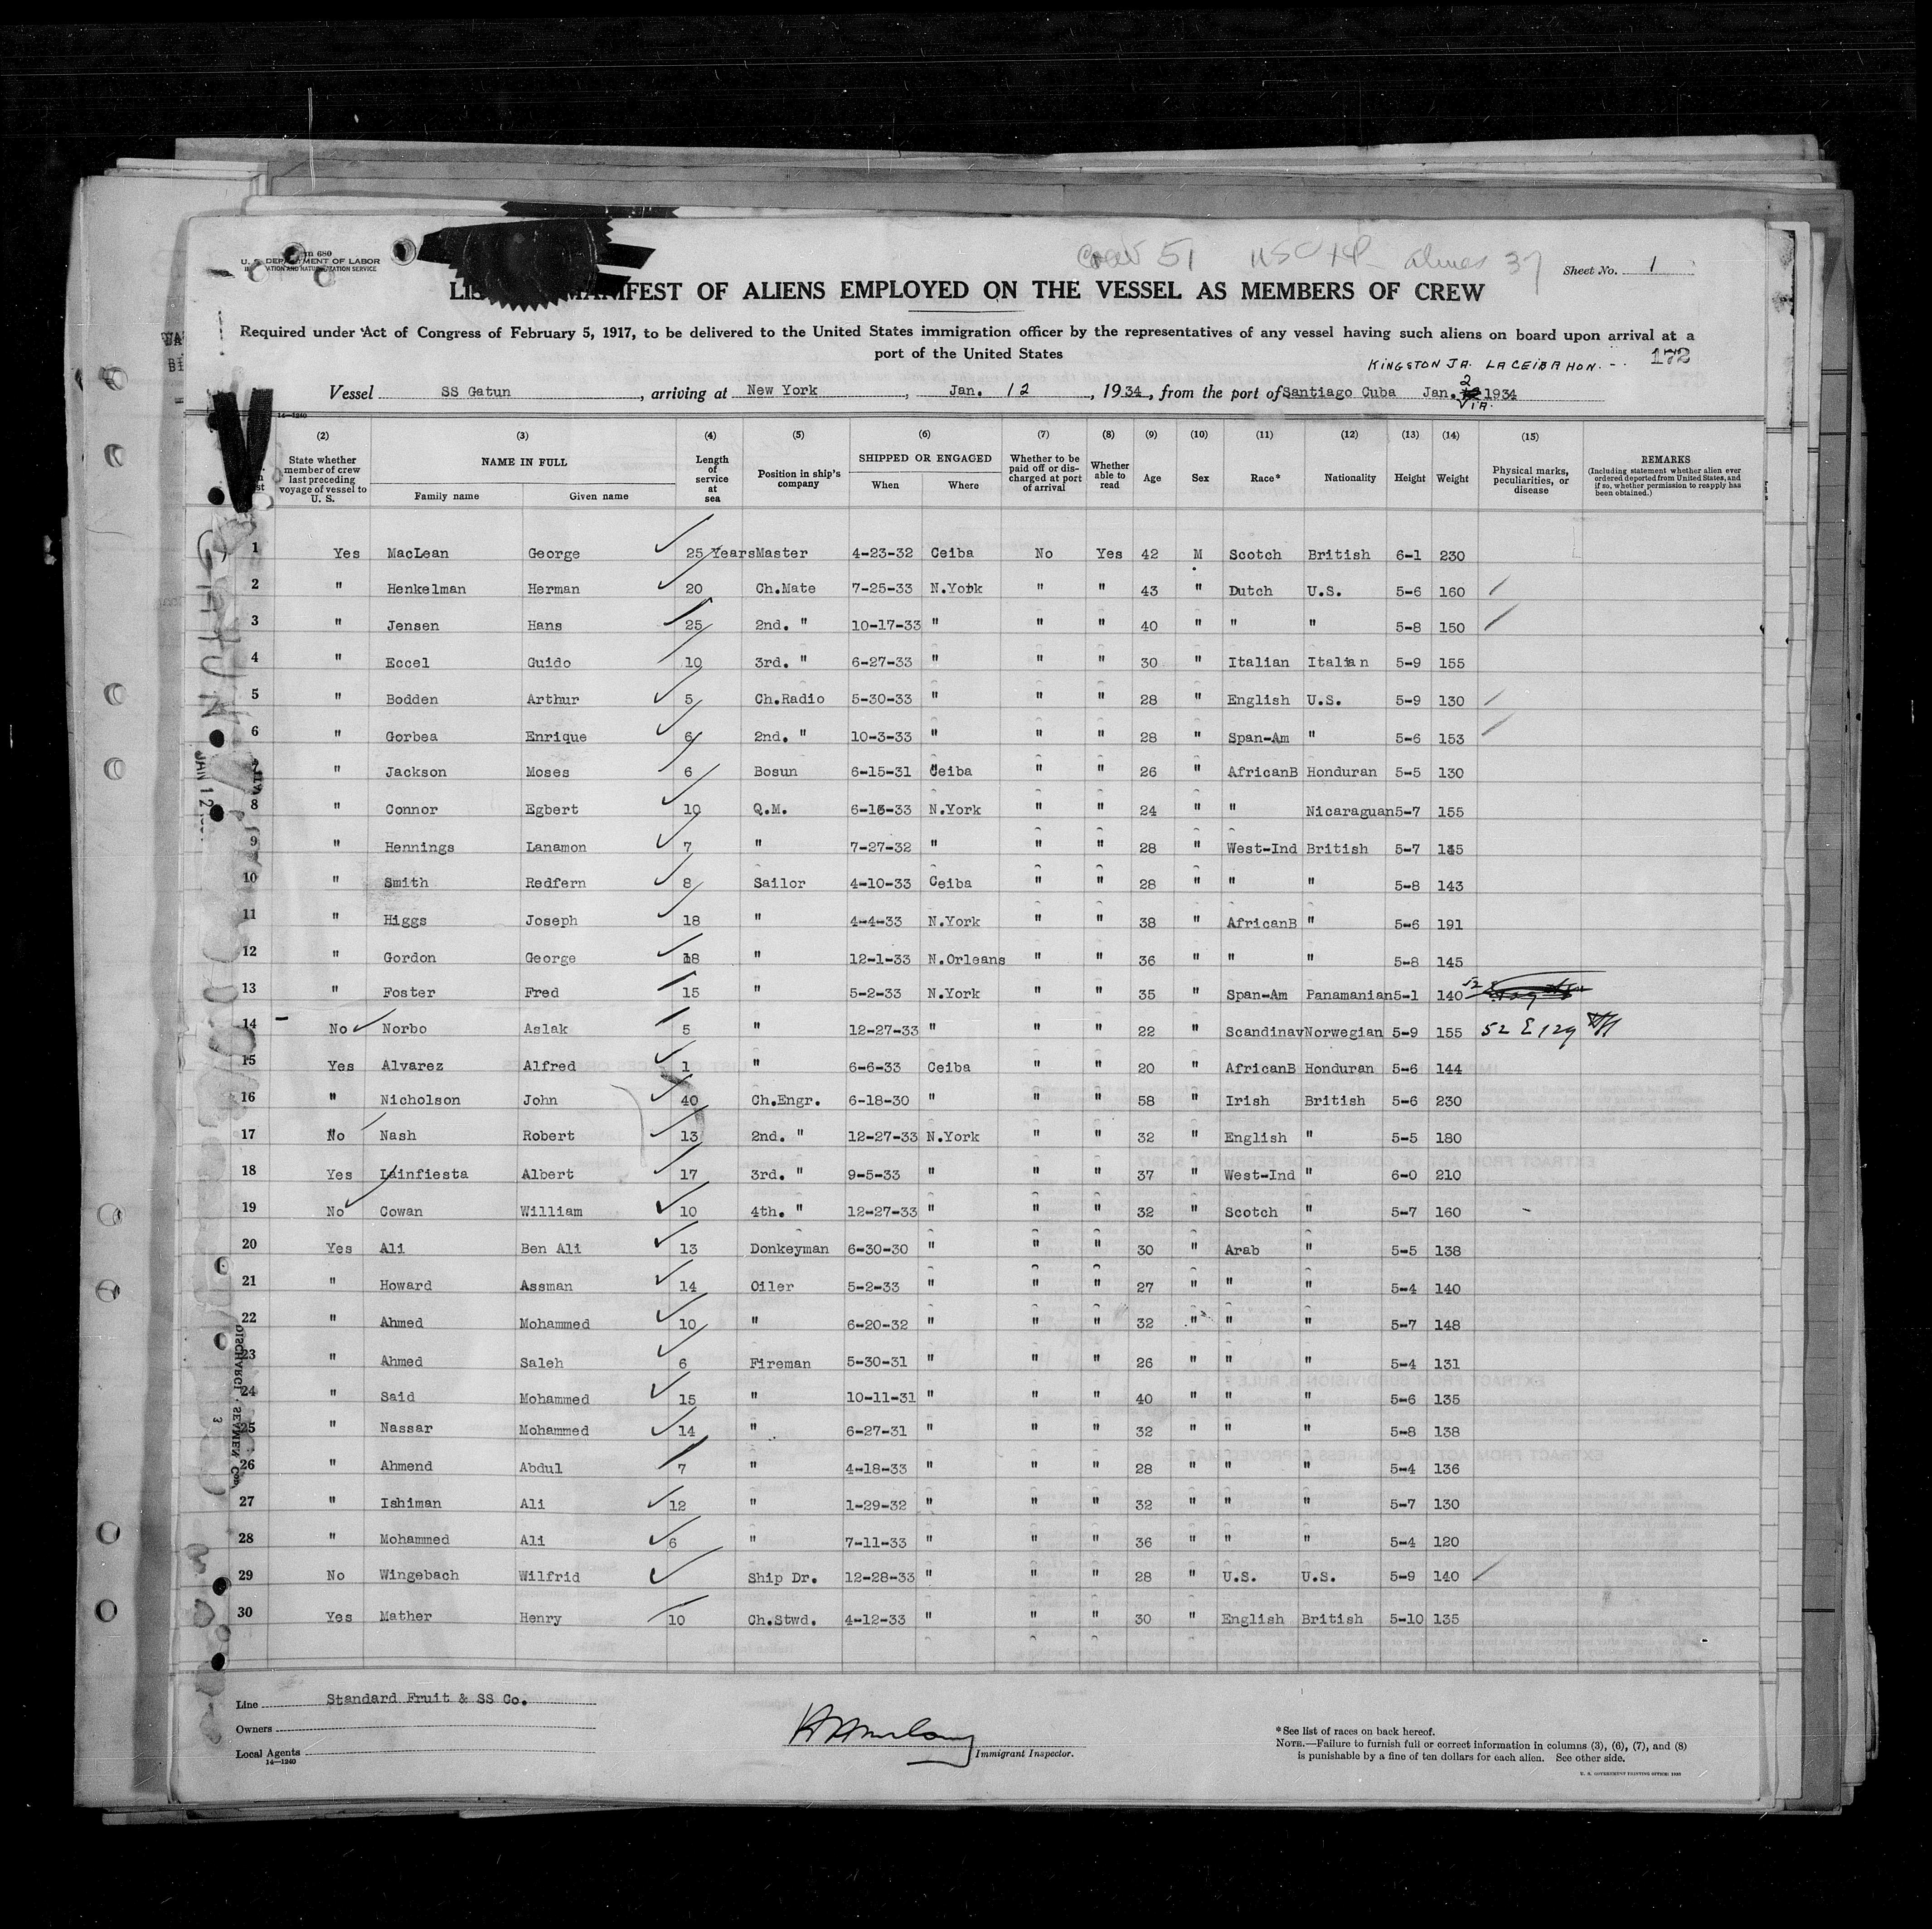 Form 680
U. S. DEPARTMENT OF LABOR
IMMIGRATION AND NATURALIZATION SERVICE
Crew 51 USC aliens 37
Sheet No. 1
MANIFEST OF ALIENS EMPLOYED ON THE VESSEL AS MEMBERS OF CREW
Required under Act of Congress of February 5, 1917, to be delivered to the United States immigration officer by the representatives of any vessel having such aliens on board upon arrival at a
port of the United States
KINGSTON JA. LA CEIBA HON. 172
Vessel SS Gatun, arriving at New York, Jan. 12, 1934, from the port of Santiago Cuba Jan. 2 1934
VIA.
14—1240
(2) (3) (4) (5) (6) (7) (8) (9) (10) (11) (12) (13) (14) (15)
State whether member of crew last preceding voyage of vessel to U. S.
NAME IN FULL
Family name Given name
Length of service at sea
Position in ship's company
SHIPPED OR ENGAGED
When Where
Whether to be paid off or discharged at port of arrival
Whether able to read
Age
Sex
Race*
Nationality
Height
Weight
Physical marks, peculiarities, or disease
REMARKS
(Including statement whether alien ever ordered deported from United States, and if so, whether permission to reapply has been obtained.)
1 Yes MacLean George 25 Years Master 4-23-32 Ceiba No Yes 42 M Scotch British 6-1 230
2 " Henkelman Herman 20 Ch.Mate 7-25-33 N.York " " 43 " Dutch U.S. 5-6 160
3 " Jensen Hans 25 2nd. " 10-17-33 " " " 40 " " " 5-8 150
4 " Eccel Guido 10 3rd. " 6-27-33 " " " 30 " Italian Italian 5-9 155
5 " Bodden Arthur 5 Ch.Radio 5-30-33 " " " 28 " English U.S. 5-9 130
6 " Gorbea Enrique 6 2nd. " 10-3-33 " " " 28 " Span-Am " 5-6 153
7 " Jackson Moses 6 Bosun 6-15-31 Ceiba " " 26 " AfricanB Honduran 5-5 130
8 " Connor Egbert 10 Q.M. 6-15-33 N.York " " 24 " " Nicaraguan 5-7 155
9 " Hennings Lanamon 7 " 7-27-32 " " " 28 " West-Ind British 5-7 145
10 " Smith Redfern 8 Sailor 4-10-33 Ceiba " " 28 " " " 5-8 143
11 " Higgs Joseph 18 " 4-4-33 N.York " " 38 " AfricanB " 5-6 191
12 " Gordon George 18 " 12-1-33 N.Orleans " " 36 " " " 5-8 145
13 " Foster Fred 15 " 5-2-33 N.York " " 35 " Span-Am Panamanian 5-1 140 52
14 No Norbo Aslak 5 " 12-27-33 " " " 22 " Scandinav Norwegian 5-9 155 52 E 129
15 Yes Alvarez Alfred 1 " 6-6-33 Ceiba " " 20 " AfricanB Honduran 5-6 144
16 " Nicholson John 40 Ch.Engr. 6-18-30 " " " 58 " Irish British 5-6 230
17 No Nash Robert 13 2nd. " 12-27-33 N.York " " 32 " English " 5-5 180
18 Yes Lainfiesta Albert 17 3rd. " 9-5-33 " " " 37 " West-Ind " 6-0 210
19 No Cowan William 10 4th. " 12-27-33 " " " 32 " Scotch " 5-7 160
20 Yes Ali Ben Ali 13 Donkeyman 6-30-30 " " " 30 " Arab " 5-5 138
21 " Howard Assman 14 Oiler 5-2-33 " " " 27 " " " 5-4 140
22 " Ahmed Mohammed 10 " 6-20-32 " " " 32 " " " 5-7 148
23 " Ahmed Saleh 6 Fireman 5-30-31 " " " 26 " " " 5-4 131
24 " Said Mohammed 15 " 10-11-31 " " " 40 " " " 5-6 135
25 " Nassar Mohammed 14 " 6-27-31 " " " 32 " " " 5-8 138
26 " Ahmend Abdul 7 " 4-18-33 " " " 28 " " " 5-4 136
27 " Ishiman Ali 12 " 1-29-32 " " " 32 " " " 5-7 130
28 " Mohammed Ali 6 " 7-11-33 " " " 36 " " " 5-4 120
29 No Wingebach Wilfrid Ship Dr. 12-28-33 " " " 28 " U.S. U.S. 5-9 140
30 Yes Mather Henry 10 Ch.Stwd. 4-12-33 " " " 30 " English British 5-10 135
Line Standard Fruit & SS Co.
Owners
Local Agents
14—1240
Immigrant Inspector.
*See list of races on back hereof.
NOTE.—Failure to furnish full or correct information in columns (3), (6), (7), and (8)
is punishable by a fine of ten dollars for each alien. See other side.
U. S. GOVERNMENT PRINTING OFFICE: 1933
GATUN
JAN 12
DISCHARGE SEAMEN